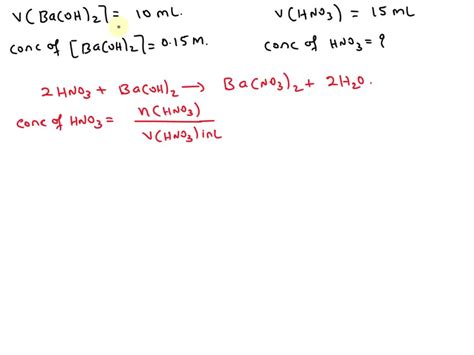 V(Ba(OH)2] = 10 mL
V(HNO3) = 15 mL
conc of [Ba(OH)2] = 0.15 M.
conc of HNO3 = ?
2 HNO3 + Ba(OH)2 → Ba(NO3)2 + 2H2O.
conc of HNO3 = n(HNO3)
V(HNO3) in L